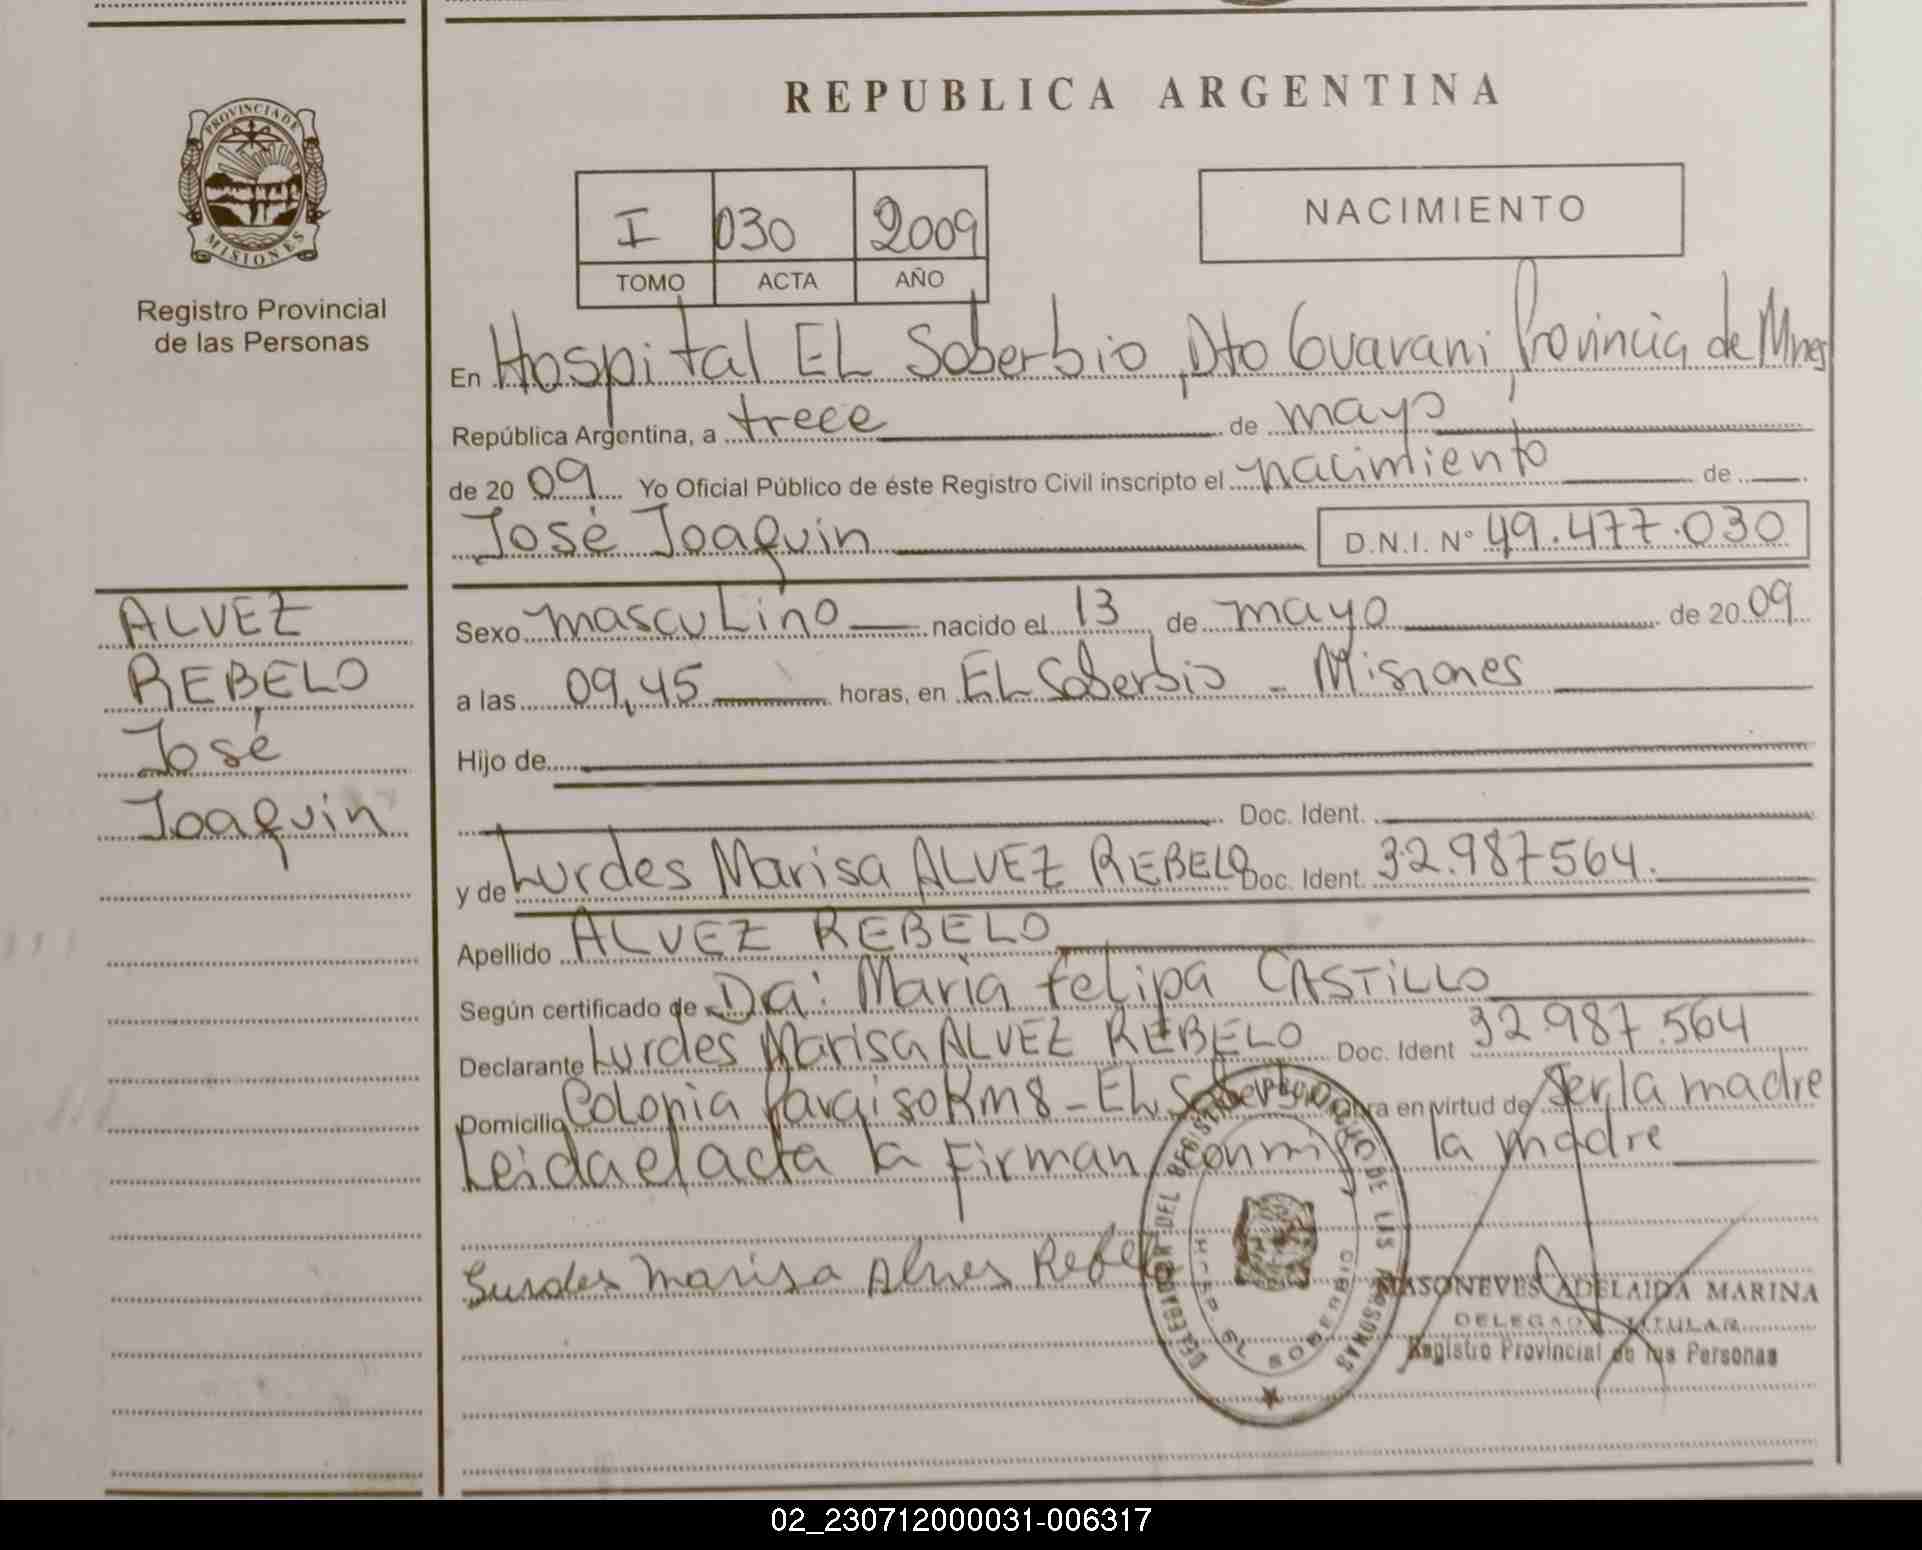 PROVINCIA DE
MISIONES
Registro Provincial
de las Personas
ALVEZ
REBELO
José
Joaquin
REPUBLICA ARGENTINA
I 030 2009
TOMO ACTA AÑO
NACIMIENTO
En Hospital EL Soberbio, Dto Guarani, Provincia de Mnes
República Argentina, a trece de mayo
de 20 09 Yo Oficial Público de éste Registro Civil inscripto el nacimiento de
José Joaquin D.N.I. N° 49.477.030
Sexo masculino nacido el 13 de mayo de 20 09
a las 09,45 horas, en EL Soberbio - Misiones
Hijo de
Doc. Ident.
y de Lurdes Marisa ALVEZ REBELO Doc. Ident. 32.987564.
Apellido ALVEZ REBELO
Según certificado de Da: Maria Felipa CASTILLO
Declarante Lurdes Marisa ALVEZ REBELO Doc. Ident 32.987.564
Domicilio Colonia Paraiso Km8 - EL Soberbio en virtud de ser la madre
Leida el acta la Firman conmigo la madre
Lurdes Marisa Alves Rebelo
HOSP. EL SOBERBIO
MASONEVES ADELAIDA MARINA
DELEGADA TITULAR
Registro Provincial de las Personas
02_230712000031-006317